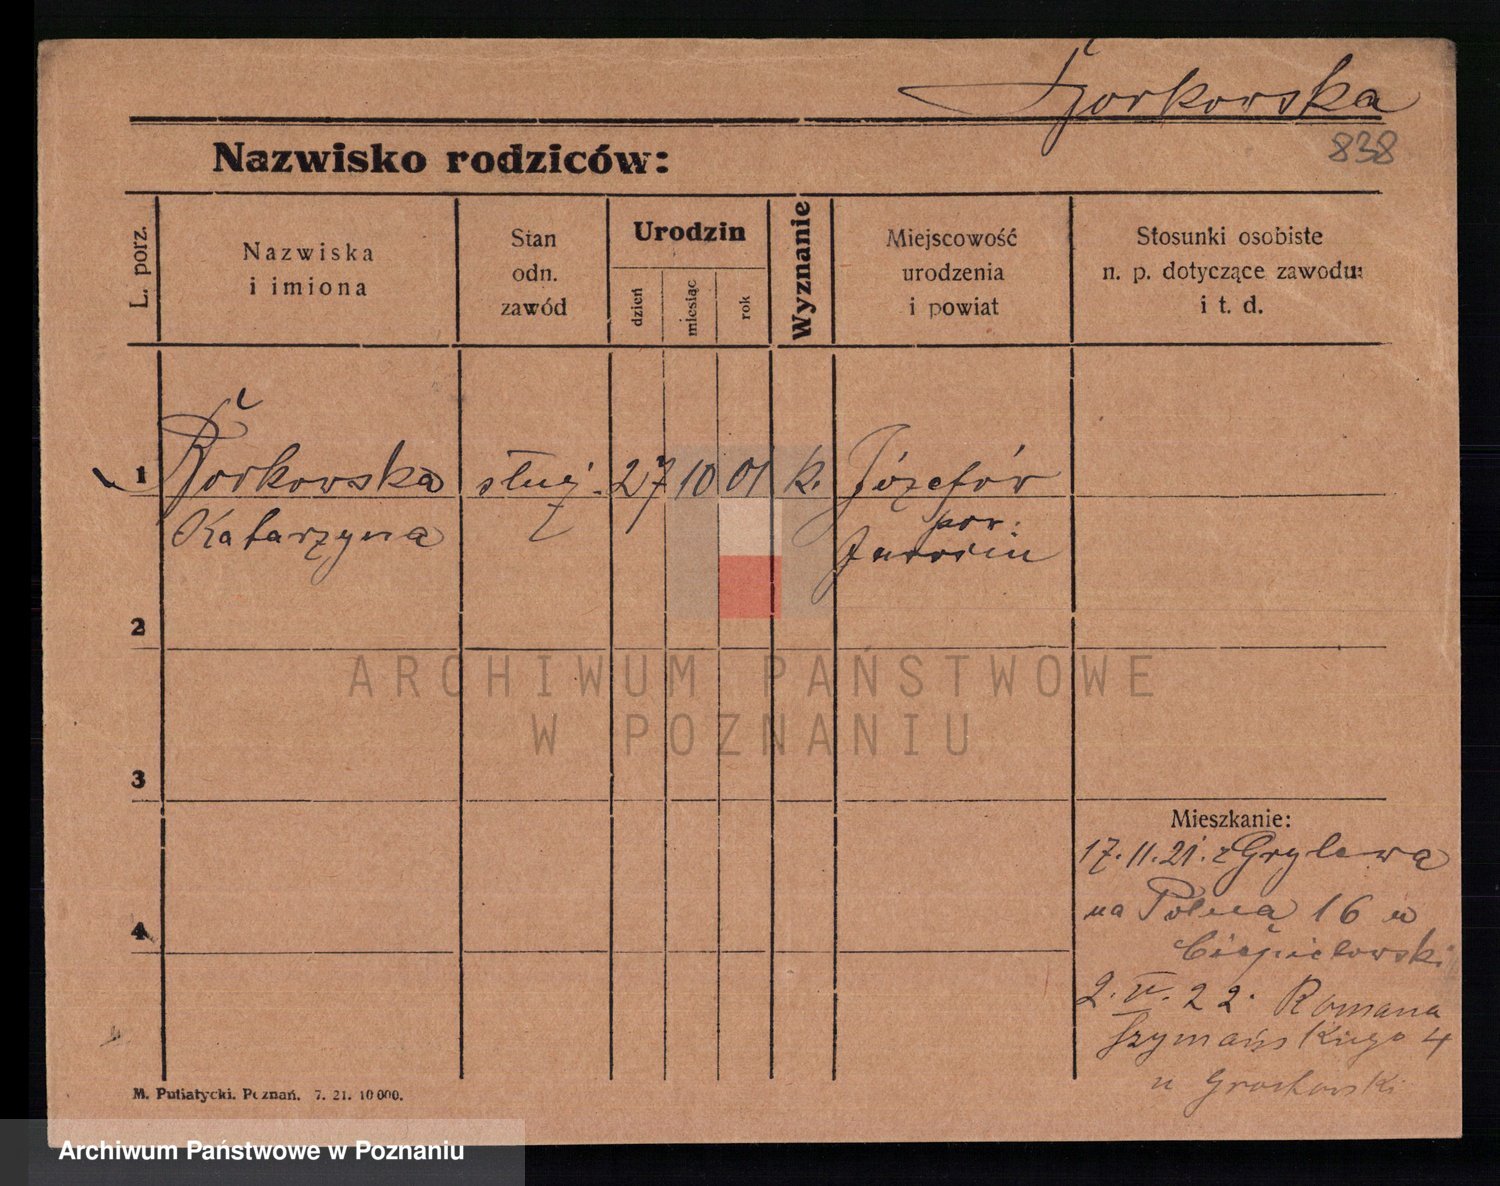 Żorkowska
838
Nazwisko rodziców:
L. porz.
Nazwiska
i imiona
Stan
odn.
zawód
Urodzin
dzień
miesiąc
rok
Wyznanie
Miejscowość
urodzenia
i powiat
Stosunki osobiste
n. p. dotyczące zawodu:
i t. d.
1
Żorkowska
Katarzyna
służ.
27
10
01
k.
Józefów
pow:
Jarocin
2
3
4
Mieszkanie:
17.11.21. z Grylewa
na Polna 16 u
2. V. 22. Romana
Szymańskiego 4
u Grochowski
M. Putiatycki. Poznań. 7. 21. 10 000.
ARCHIWUM PAŃSTWOWE
W POZNANIU
Archiwum Państwowe w Poznaniu